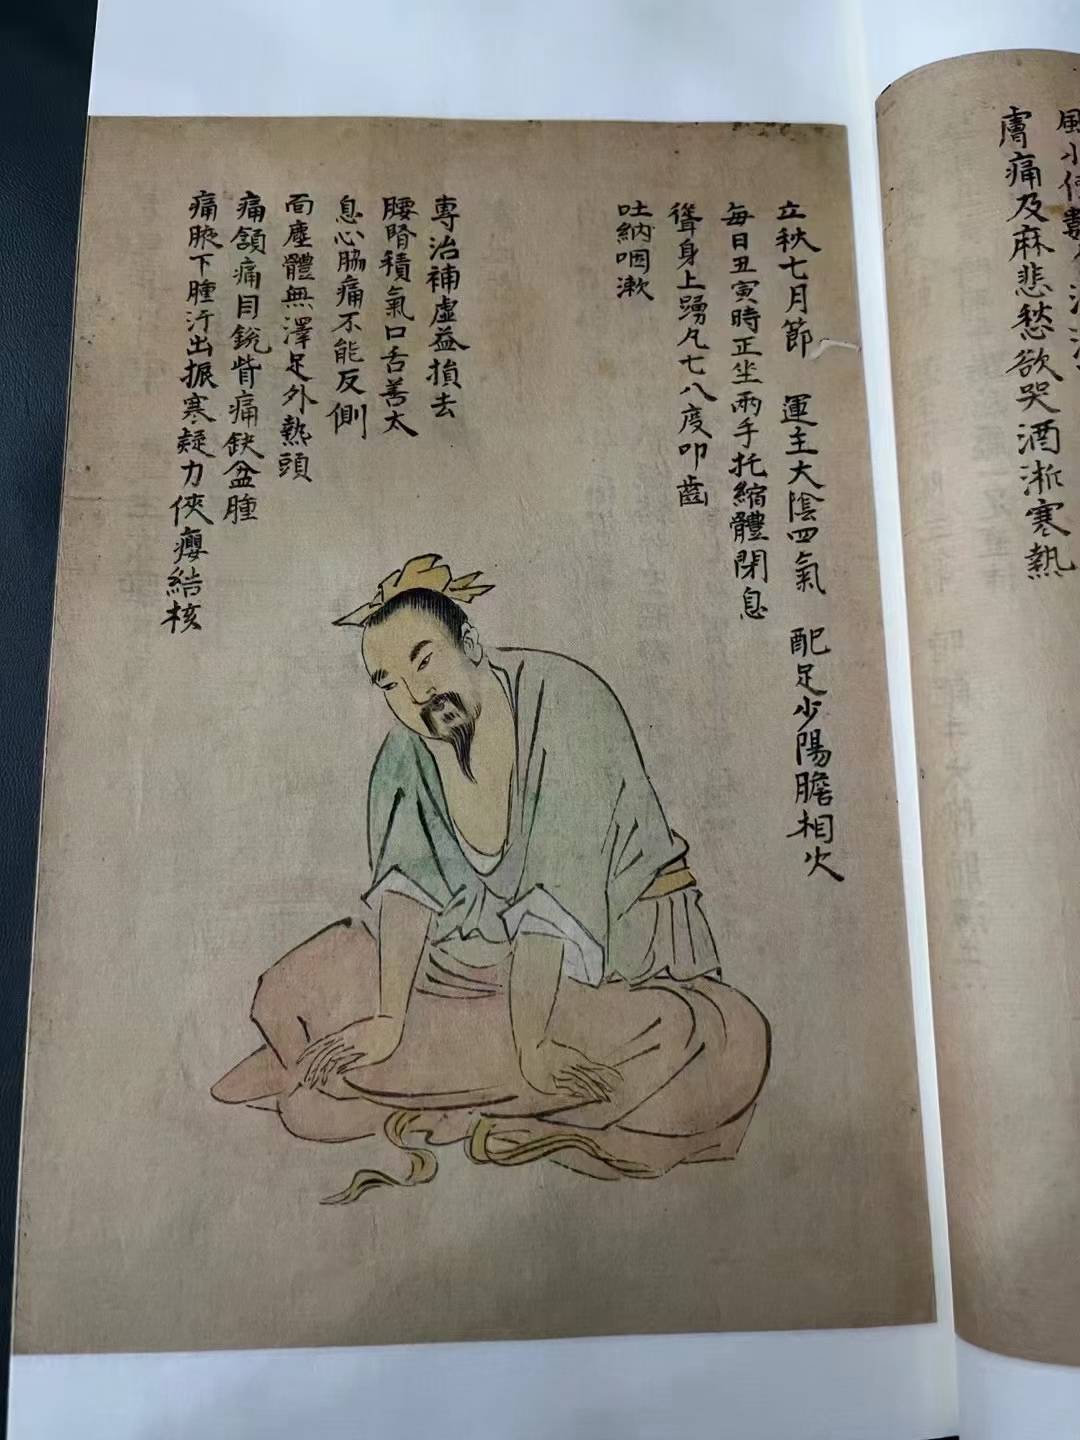 膚痛及麻悲愁欲哭洒淅寒熱
立秋七月節　運主大陰四氣　配足少陽膽相火
每日丑寅時正坐兩手托縮體閉息
聳身上踴凡七八度叩齒
吐納咽漱
專治補虛益損去
腰腎積氣口舌善太
息心脇痛不能反側
面塵體無澤足外熱頭
痛頷痛目銳眥痛缺盆腫
痛腋下腫汗出振寒疑力俠癭結核